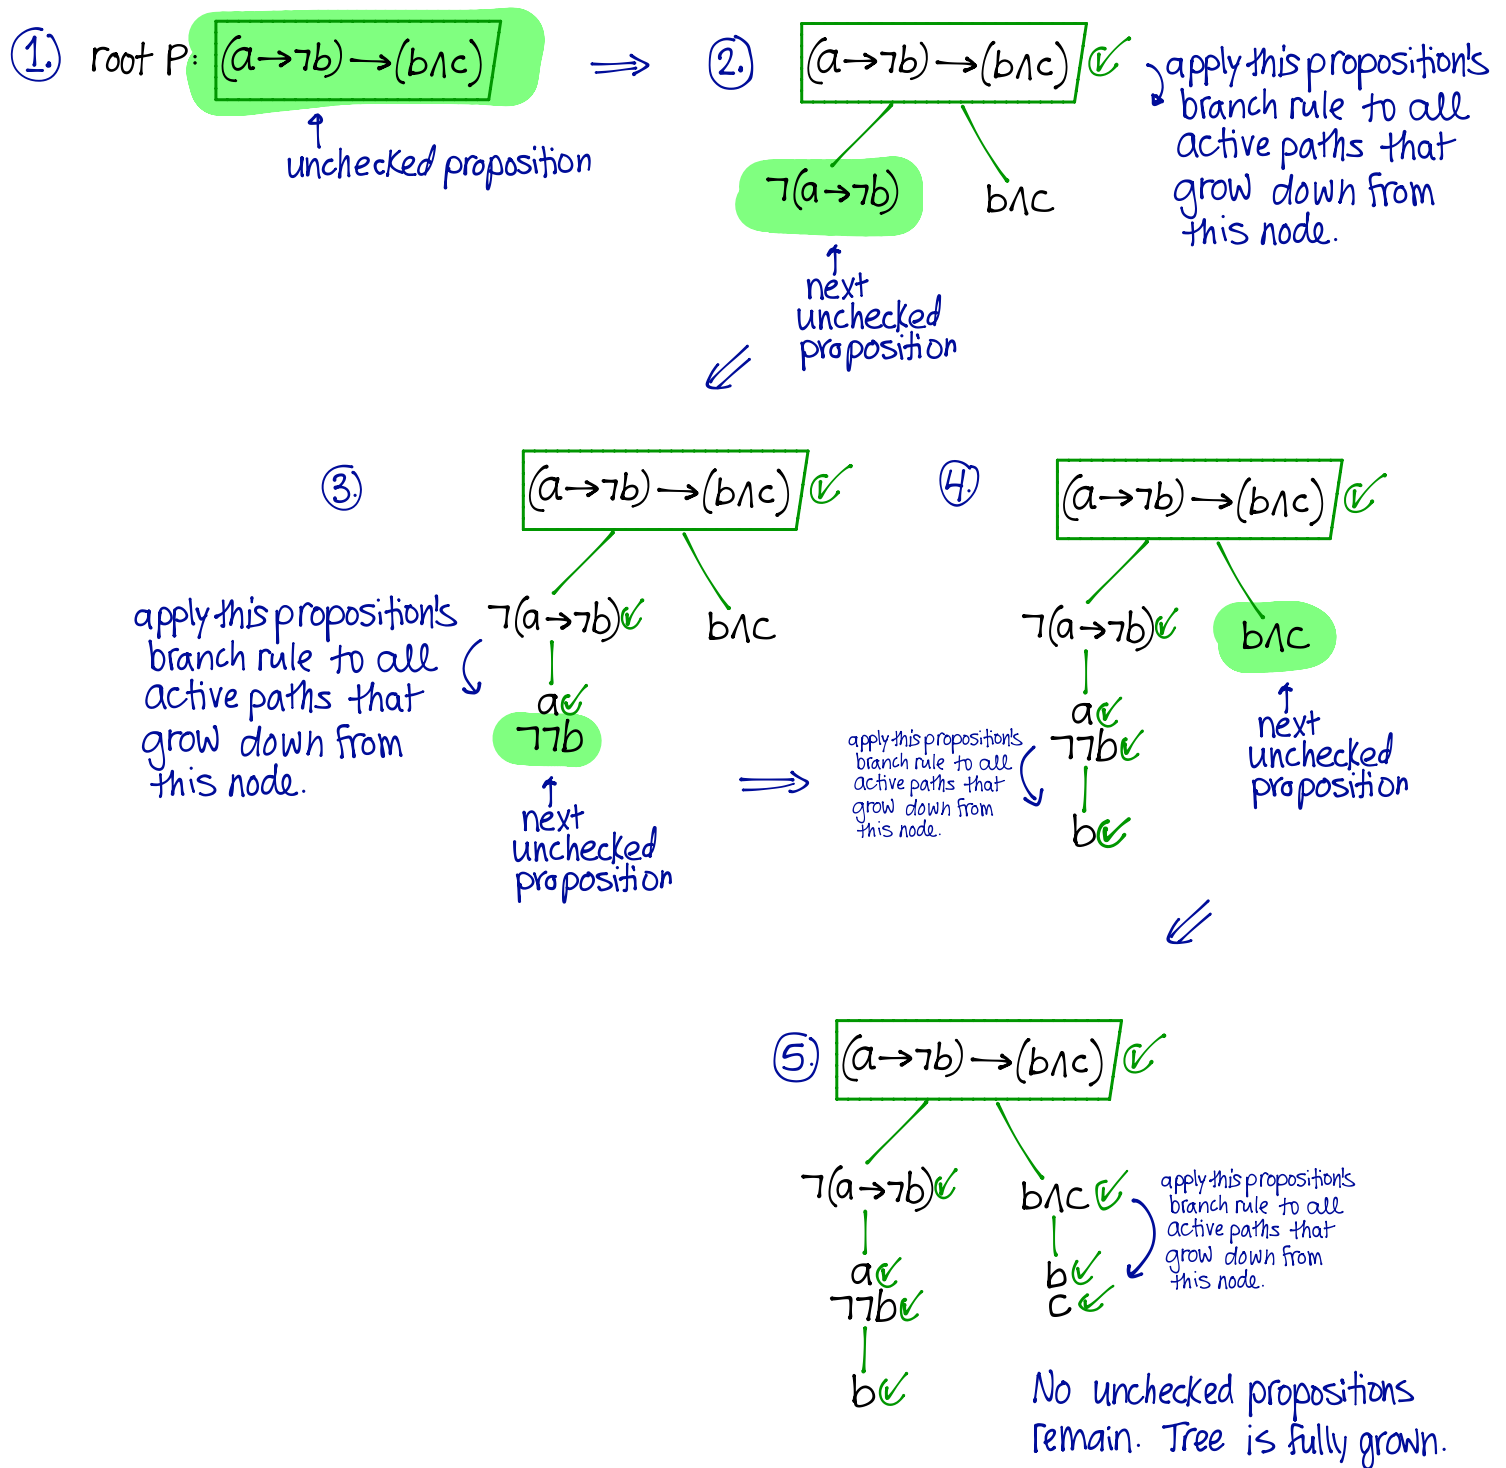 1. root P: (a→¬b)→(b∧c) ⇒
unchecked proposition
2. (a→¬b)→(b∧c) ✓
apply this proposition's
branch rule to all
active paths that
grow down from
this node.
¬(a→¬b) b∧c
next
unchecked
proposition
3. (a→¬b)→(b∧c) ✓
¬(a→¬b)✓ b∧c
apply this proposition's
branch rule to all
active paths that
grow down from
this node.
a✓
¬¬b
next
unchecked
proposition
4. (a→¬b)→(b∧c) ✓
¬(a→¬b)✓ b∧c
a✓
¬¬b✓
b✓
apply this proposition's
branch rule to all
active paths that
grow down from
this node.
next
unchecked
proposition
5. (a→¬b)→(b∧c) ✓
¬(a→¬b)✓ b∧c ✓
a✓
¬¬b✓
b✓
b✓
c✓
apply this proposition's
branch rule to all
active paths that
grow down from
this node.
No unchecked propositions
remain. Tree is fully grown.